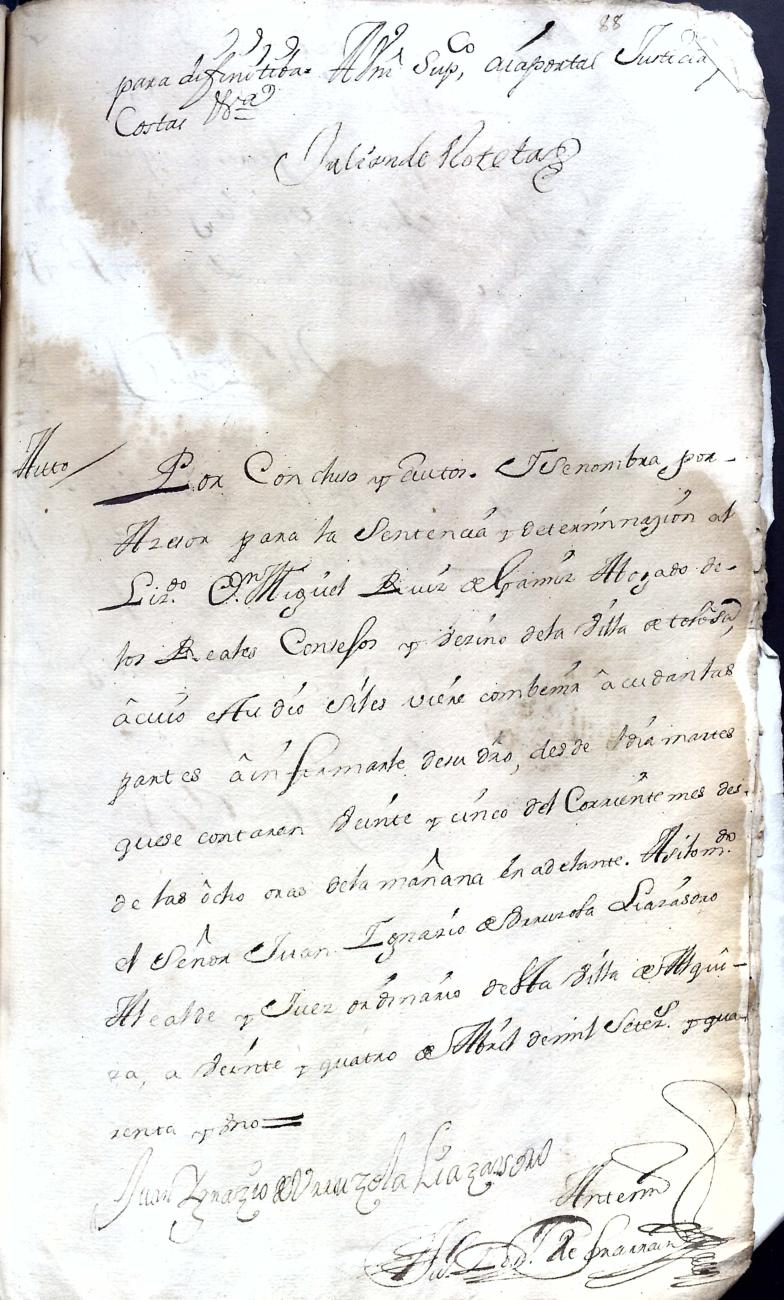 88
para difinitiba. A Vm sup,co aia por tal Justicia,
Costas Vra
Julian de Roteta
Auto / Por Concluso y autos. I se nombra por-
Azesor para la Sentencia y determinazion al
Lizdo Dn Miguel Ruiz de Gamiz Abogado de-
los Reales Consejos y vezino de la Villa de tolosa,
â cuio estudio si les viere combenir âcudan las
partes â informarle de su dro, desde el dia martes
que se contaren veinte y cinco del Corriente mes des-
de las ôcho oras de la mañana en adelante. Asi lo mdo
el Señor Juan Ignazio de Vrruzola Liazasoro
Alcalde y Juez ordinario de esta Villa de Alqui-
za, a veinte y quatro de Abril de mil Setes. y qua-
renta y Vno =
Juan Ygnazio de Vrruzola Liazasoro
Antemi
de Gnarrain